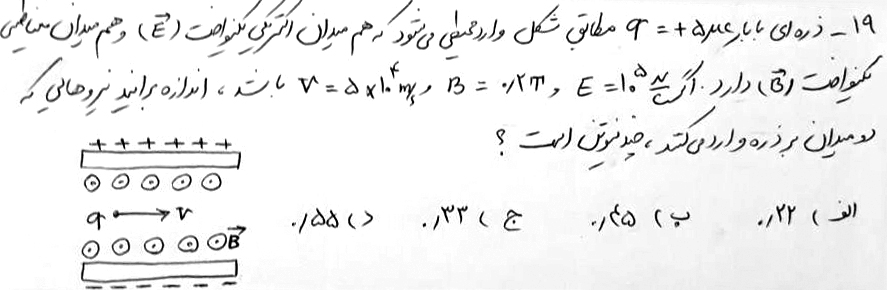 ۱۹ - ذره‌ای با بار q = +۵μc مطابق شکل وارد محیطی می‌شود که هم میدان الکتریکی یکنواخت (E⃗) و هم میدان مغناطیسی
یکنواخت (B⃗) دارد. اگر E = ۱۰^۵ N/C و B = ۰/۲T و V = ۵×۱۰^۴ m/s باشد، اندازه برایند نیروهایی که
دو میدان بر ذره وارد می‌کنند، چند نیوتن است؟
الف) ۰/۲۲ ب) ۰/۴۵ ج) ۰/۳۳ د) ۰/۵۵
+ + + + + +
q V
B⃗
- - - - - -